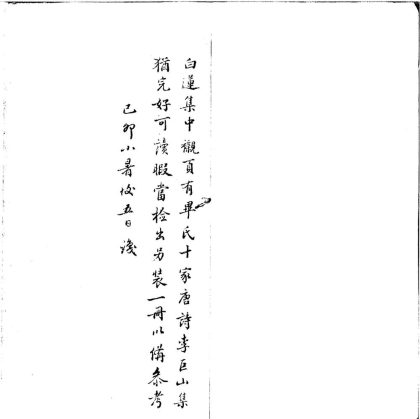 白蓮集中襯頁有畢氏十家唐詩李巨山集
猶完好可讀暇當檢出另裝一冊以備參考
己卯小暑後五日